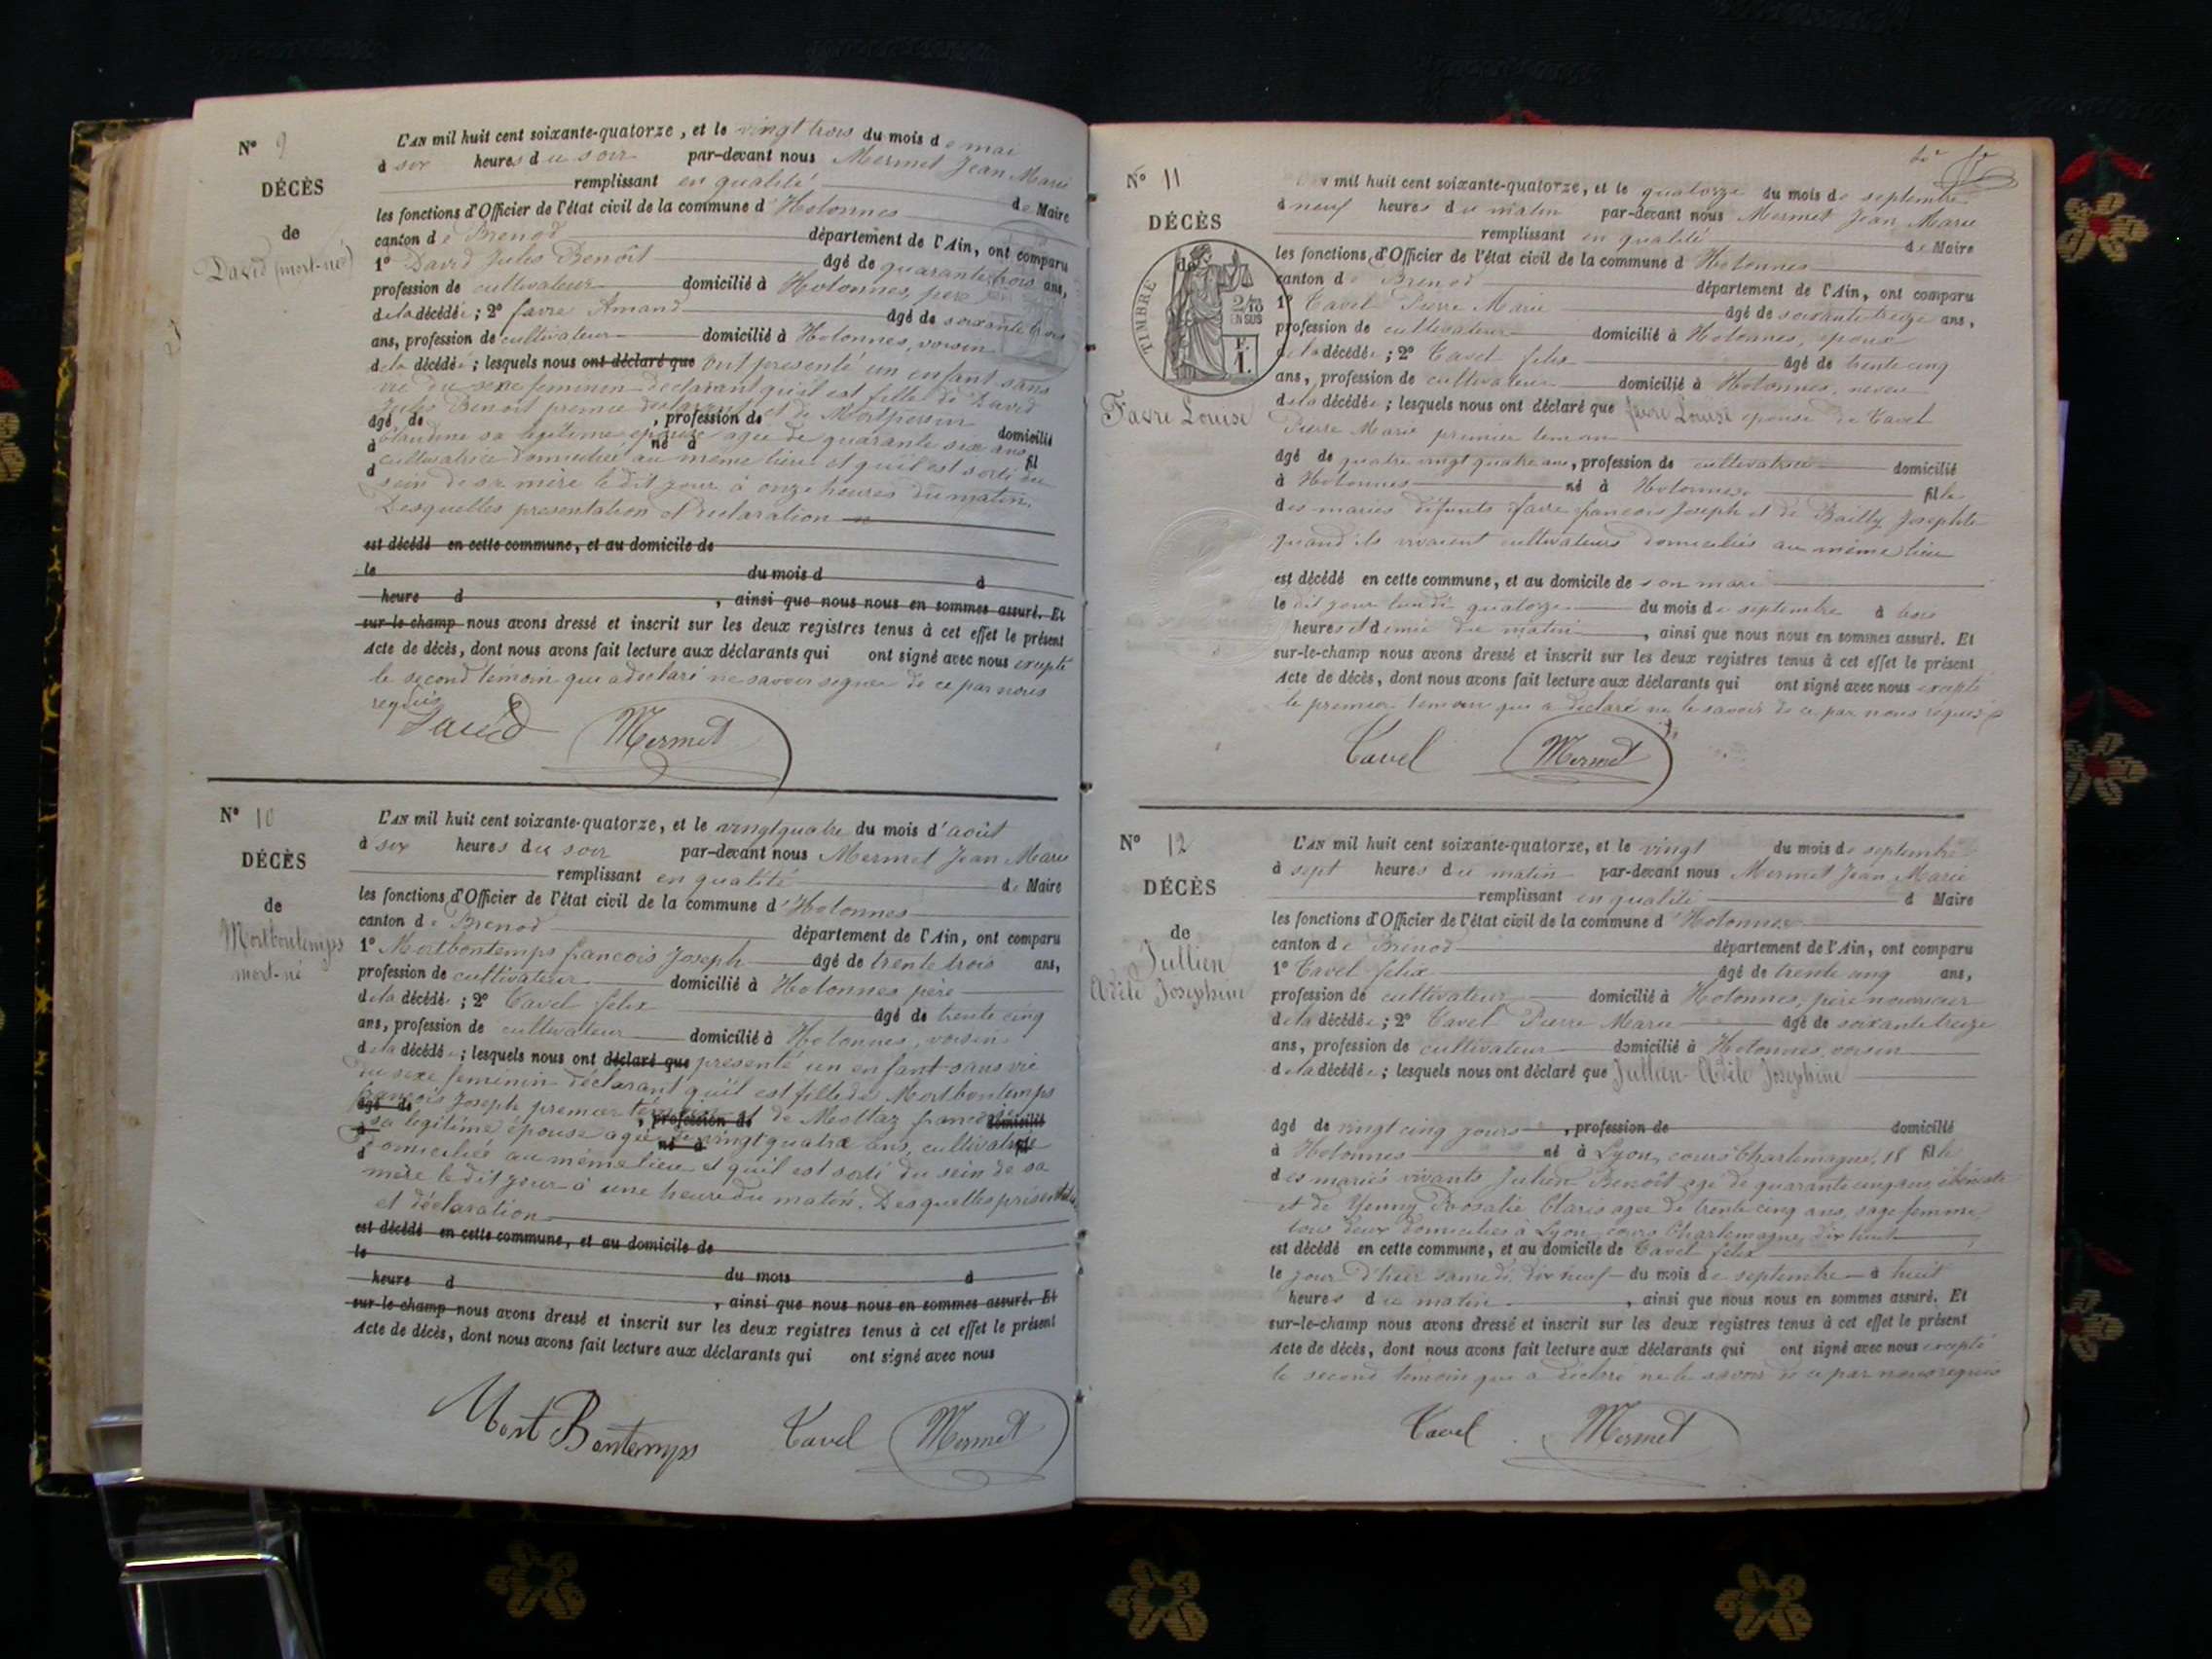 N° 9
DÉCÈS
de
David (mort-né)
L'AN mil huit cent soixante-quatorze, et le vingt trois du mois de mai
à six heures du soir par-devant nous Mermet Jean Marie
remplissant en qualité de Maire
les fonctions d'Officier de l'état civil de la commune d'Hotonnes
canton de Brenod département de l'Ain, ont comparu
1° David Jules Benoît âgé de quarante trois ans,
profession de cultivateur domicilié à Hotonnes, père
de la décédée; 2° favre Amand âgé de soixante trois
ans, profession de cultivateur domicilié à Hotonnes, voisin
de la décédée; lesquels nous ont déclaré que ont presenté un enfant sans
vie du sexe feminin declarant qu'il est fille de David
Jules Benoit premier declarant et de
âgé de , profession de domicilié
Claudine sa legitime épouse agée de quarante six ans
à né à fil
cultivatrice domiciliée au même lieu et qu'il est sorti du
d sein de sa mère le dit jour à onze heures du matin.
Desquelles presentation et declaration
est décédé en cette commune, et au domicile de
le du mois d à
heure d , ainsi que nous nous en sommes assuré. Et
sur-le-champ nous avons dressé et inscrit sur les deux registres tenus à cet effet le présent
Acte de décès, dont nous avons fait lecture aux déclarants qui ont signé avec nous excepté
le second témoin qui a declaré ne savoir signer de ce par nous
requis
David Mermet
N° 10
DÉCÈS
de
Mortbontemps
mort-né
L'AN mil huit cent soixante-quatorze, et le vingt quatre du mois d'août
à six heures du soir par-devant nous Mermet Jean Marie
remplissant en qualité de Maire
les fonctions d'Officier de l'état civil de la commune d'Hotonnes
canton de Brenod département de l'Ain, ont comparu
1° Mortbontemps francois Joseph âgé de trente trois ans,
profession de cultivateur domicilié à Hotonnes père
de la décédée; 2° Tavel felix âgé de trente cinq
ans, profession de cultivateur domicilié à Hotonnes, voisin
de la décédée; lesquels nous ont déclaré que presenté un enfant sans vie
du sexe feminin déclarant qu'il est fille de Mortbontemps
francois Joseph premier témoin et de Mottaz
âgé de , profession de domicilié
sa légitime épouse agée de vingt quatre ans, cultivatrice
à né à fil
d domiciliée au même lieu et qu'il est sorti du sein de sa
mère le dit jour à une heure du matin. Desquelles présentation
et déclaration
est décédé en cette commune, et au domicile de
le
du mois d à
heure d , ainsi que nous nous en sommes assuré. Et
sur-le-champ nous avons dressé et inscrit sur les deux registres tenus à cet effet le présent
Acte de décès, dont nous avons fait lecture aux déclarants qui ont signé avec nous
Mort Bontemps Tavel Mermet
N° 11
DÉCÈS
de
TIMBRE
2/10
EN SUS
F.
1.
Favre Louise
mil huit cent soixante-quatorze, et le quatorze du mois de septembre
à neuf heures du matin par-devant nous Mermet Jean Marie
remplissant en qualité de Maire
les fonctions d'Officier de l'état civil de la commune d Hotonnes
canton de Brenod département de l'Ain, ont comparu
1° Tavel Pierre Marie âgé de soixante treize ans,
profession de cultivateur domicilié à Hotonnes, époux
de la décédée; 2° Tavel felix âgé de trente cinq
ans, profession de cultivateur domicilié à Hotonnes, neveu
de la décédée; lesquels nous ont déclaré que favre Louise epouse de Tavel
Pierre Marie premier temoin
âgé de quatre vingt quatre ans, profession de cultivatrice domicilié
à Hotonnes né à Hotonnes fille
des mariés défunts favre francois Joseph et de Bailly Josephte
quand ils vivaient cultivateurs domiciliés au même lieu
est décédé en cette commune, et au domicile de son mari
le dit jour lundi quatorze du mois de septembre à
heures et demie du matin, ainsi que nous nous en sommes assuré. Et
sur-le-champ nous avons dressé et inscrit sur les deux registres tenus à cet effet le présent
Acte de décès, dont nous avons fait lecture aux déclarants qui ont signé avec nous excepté
le premier temoin qui a declaré ne le savoir de ce par nous réquis
Tavel Mermet
N° 12
DÉCÈS
de
Jullien
Adèle Josephine
L'AN mil huit cent soixante-quatorze, et le vingt du mois de septembre
à sept heures du matin par-devant nous Mermet Jean Marie
remplissant en qualité d Maire
les fonctions d'Officier de l'état civil de la commune d'Hotonnes
canton de Brenod département de l'Ain, ont comparu
1° Tavel felix âgé de trente cinq ans,
profession de cultivateur domicilié à Hotonnes, père nourricier
de la décédée; 2° Tavel Pierre Marie âgé de soixante treize
ans, profession de cultivateur domicilié à Hotonnes, voisin
de la décédée; lesquels nous ont déclaré que Jullien Adèle Josephine
âgé de vingt cinq jours, profession de domicilié
à Hotonnes né à Lyon, cours Charlemagne, 18 fille
des mariés vivants Julien Benoît agé de quarante cinq ans, ébéniste
et de Yenny Rosalie Claris agée de trente cinq ans, sage femme,
tous deux domiciliés à Lyon cours Charlemagne, dix huit
est décédé en cette commune, et au domicile de Tavel felix
le jour d'hier samedi dix neuf du mois de septembre à huit
heures du matin, ainsi que nous nous en sommes assuré. Et
sur-le-champ nous avons dressé et inscrit sur les deux registres tenus à cet effet le présent
Acte de décès, dont nous avons fait lecture aux déclarants qui ont signé avec nous excepté
le second témoin qui a déclaré ne le savoir de ce par nous requis
Tavel Mermet